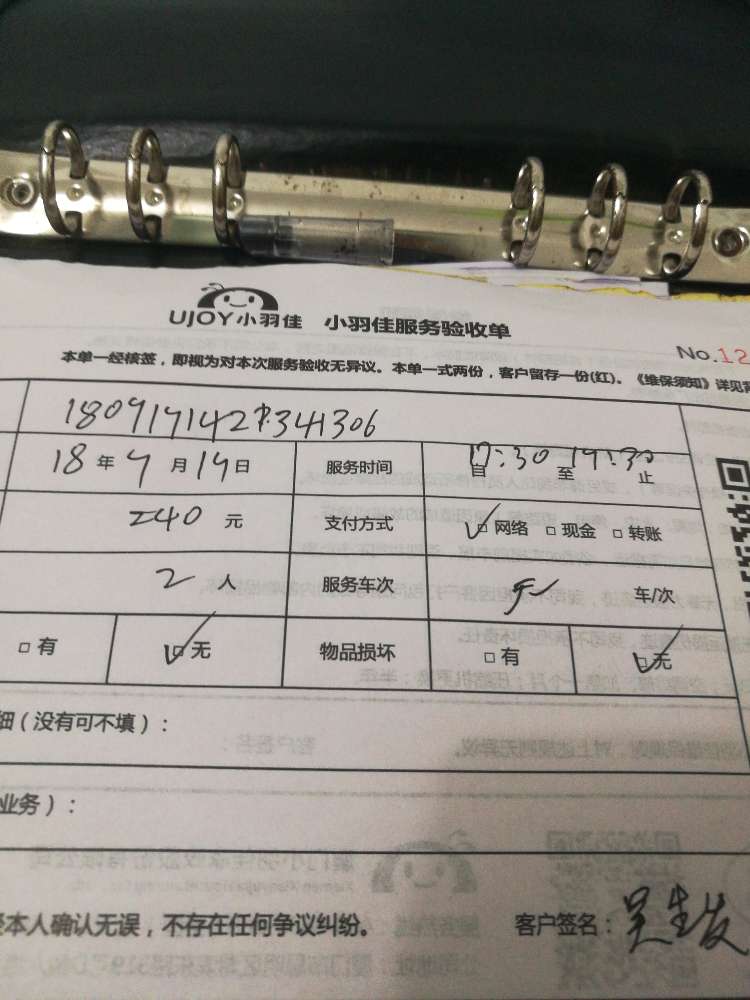 UJOY小羽佳 小羽佳服务验收单
No.12
本单一经核签，即视为对本次服务验收无异议。本单一式两份，客户留存一份(红)。《维保须知》详见
18年9月19日 服务时间 17:30自至19:30止
240元 支付方式 □网络 □现金 □转账
2人 服务车次 车/次
□有 □无 物品损坏 □有 □无
细(没有可不填)：
业务)：
本人确认无误，不存在任何争议纠纷。 客户签名：吴生发